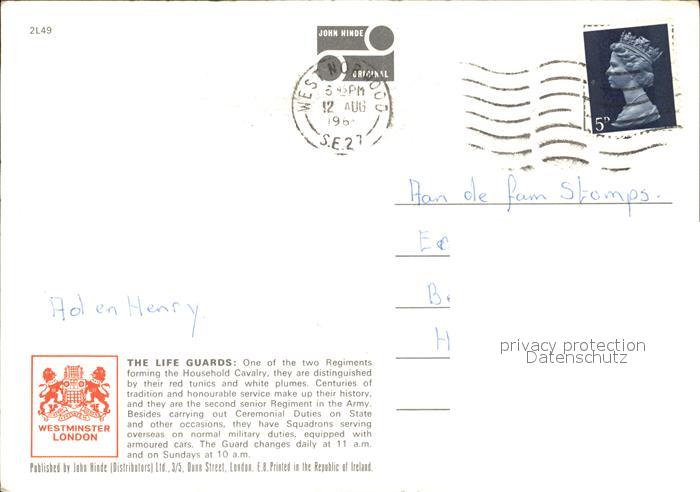 2L49
JOHN HINDE
ORIGINAL
WEST NORWOOD
PM
12 AUG
196
S.E.27
5P
Aan de fam Stomps.
Ad en Henry
privacy protection
Datenschutz
THE LIFE GUARDS: One of the two Regiments
forming the Household Cavalry, they are distinguished
by their red tunics and white plumes. Centuries of
tradition and honourable service make up their history,
and they are the second senior Regiment in the Army.
Besides carrying out Ceremonial Duties on State
and other occasions, they have Squadrons serving
overseas on normal military duties, equipped with
armoured cars. The Guard changes daily at 11 a.m.
and on Sundays at 10 a.m.
WESTMINSTER
LONDON
Published by John Hinde (Distributors) Ltd., 3/5, Dunn Street, London, E.8. Printed in the Republic of Ireland.